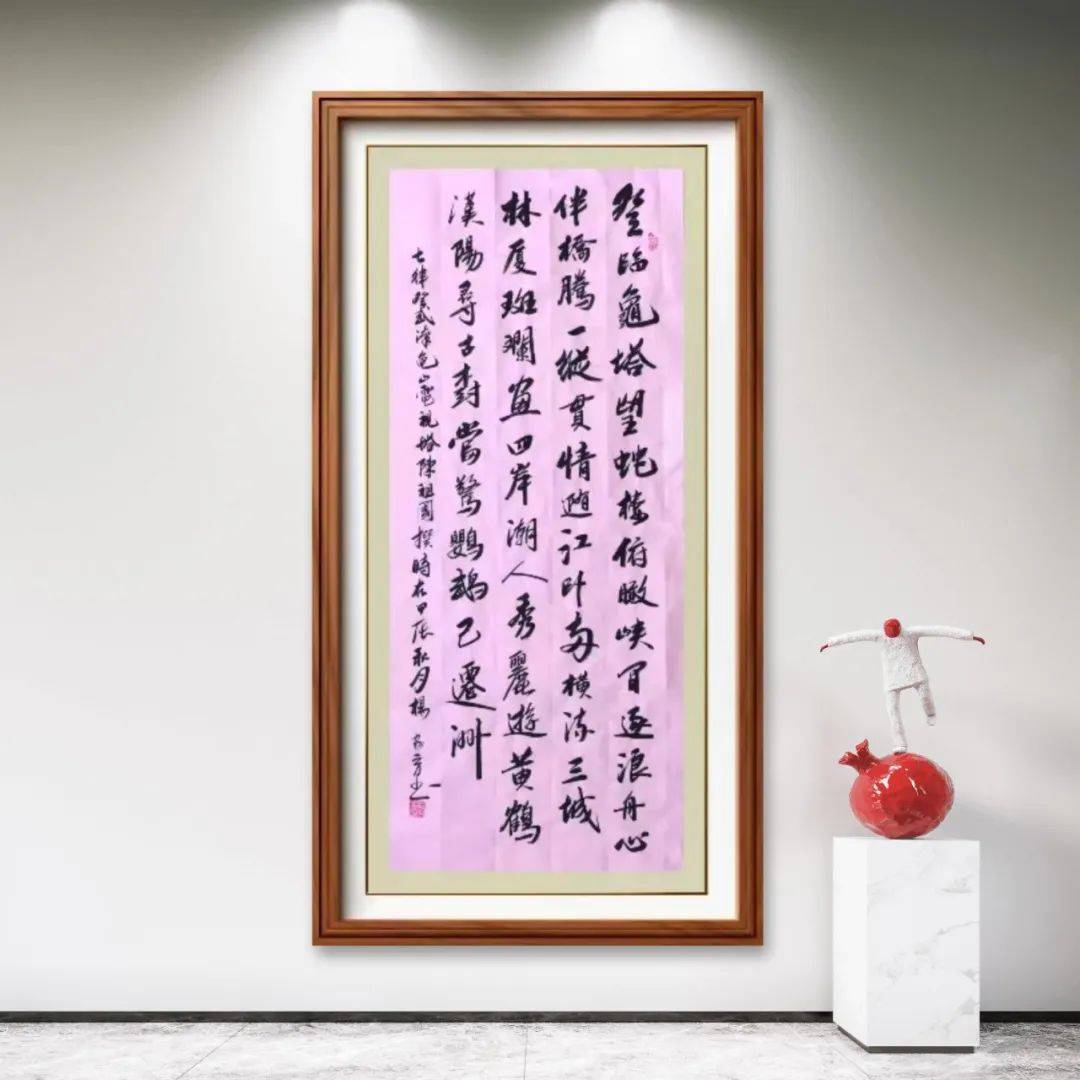 登臨龜塔望蛇樓俯瞰峽間逐浪舟心
伴橋騰一縱貫情隨江叶兩橫流三城
林厦斑斕畫四岸潮人秀麗遊黄鶴
漢陽尋古樹嘗驚鸚鵡已遷洲
七律登武漢龜山電視塔陳祖國撰時在甲辰秋月楊